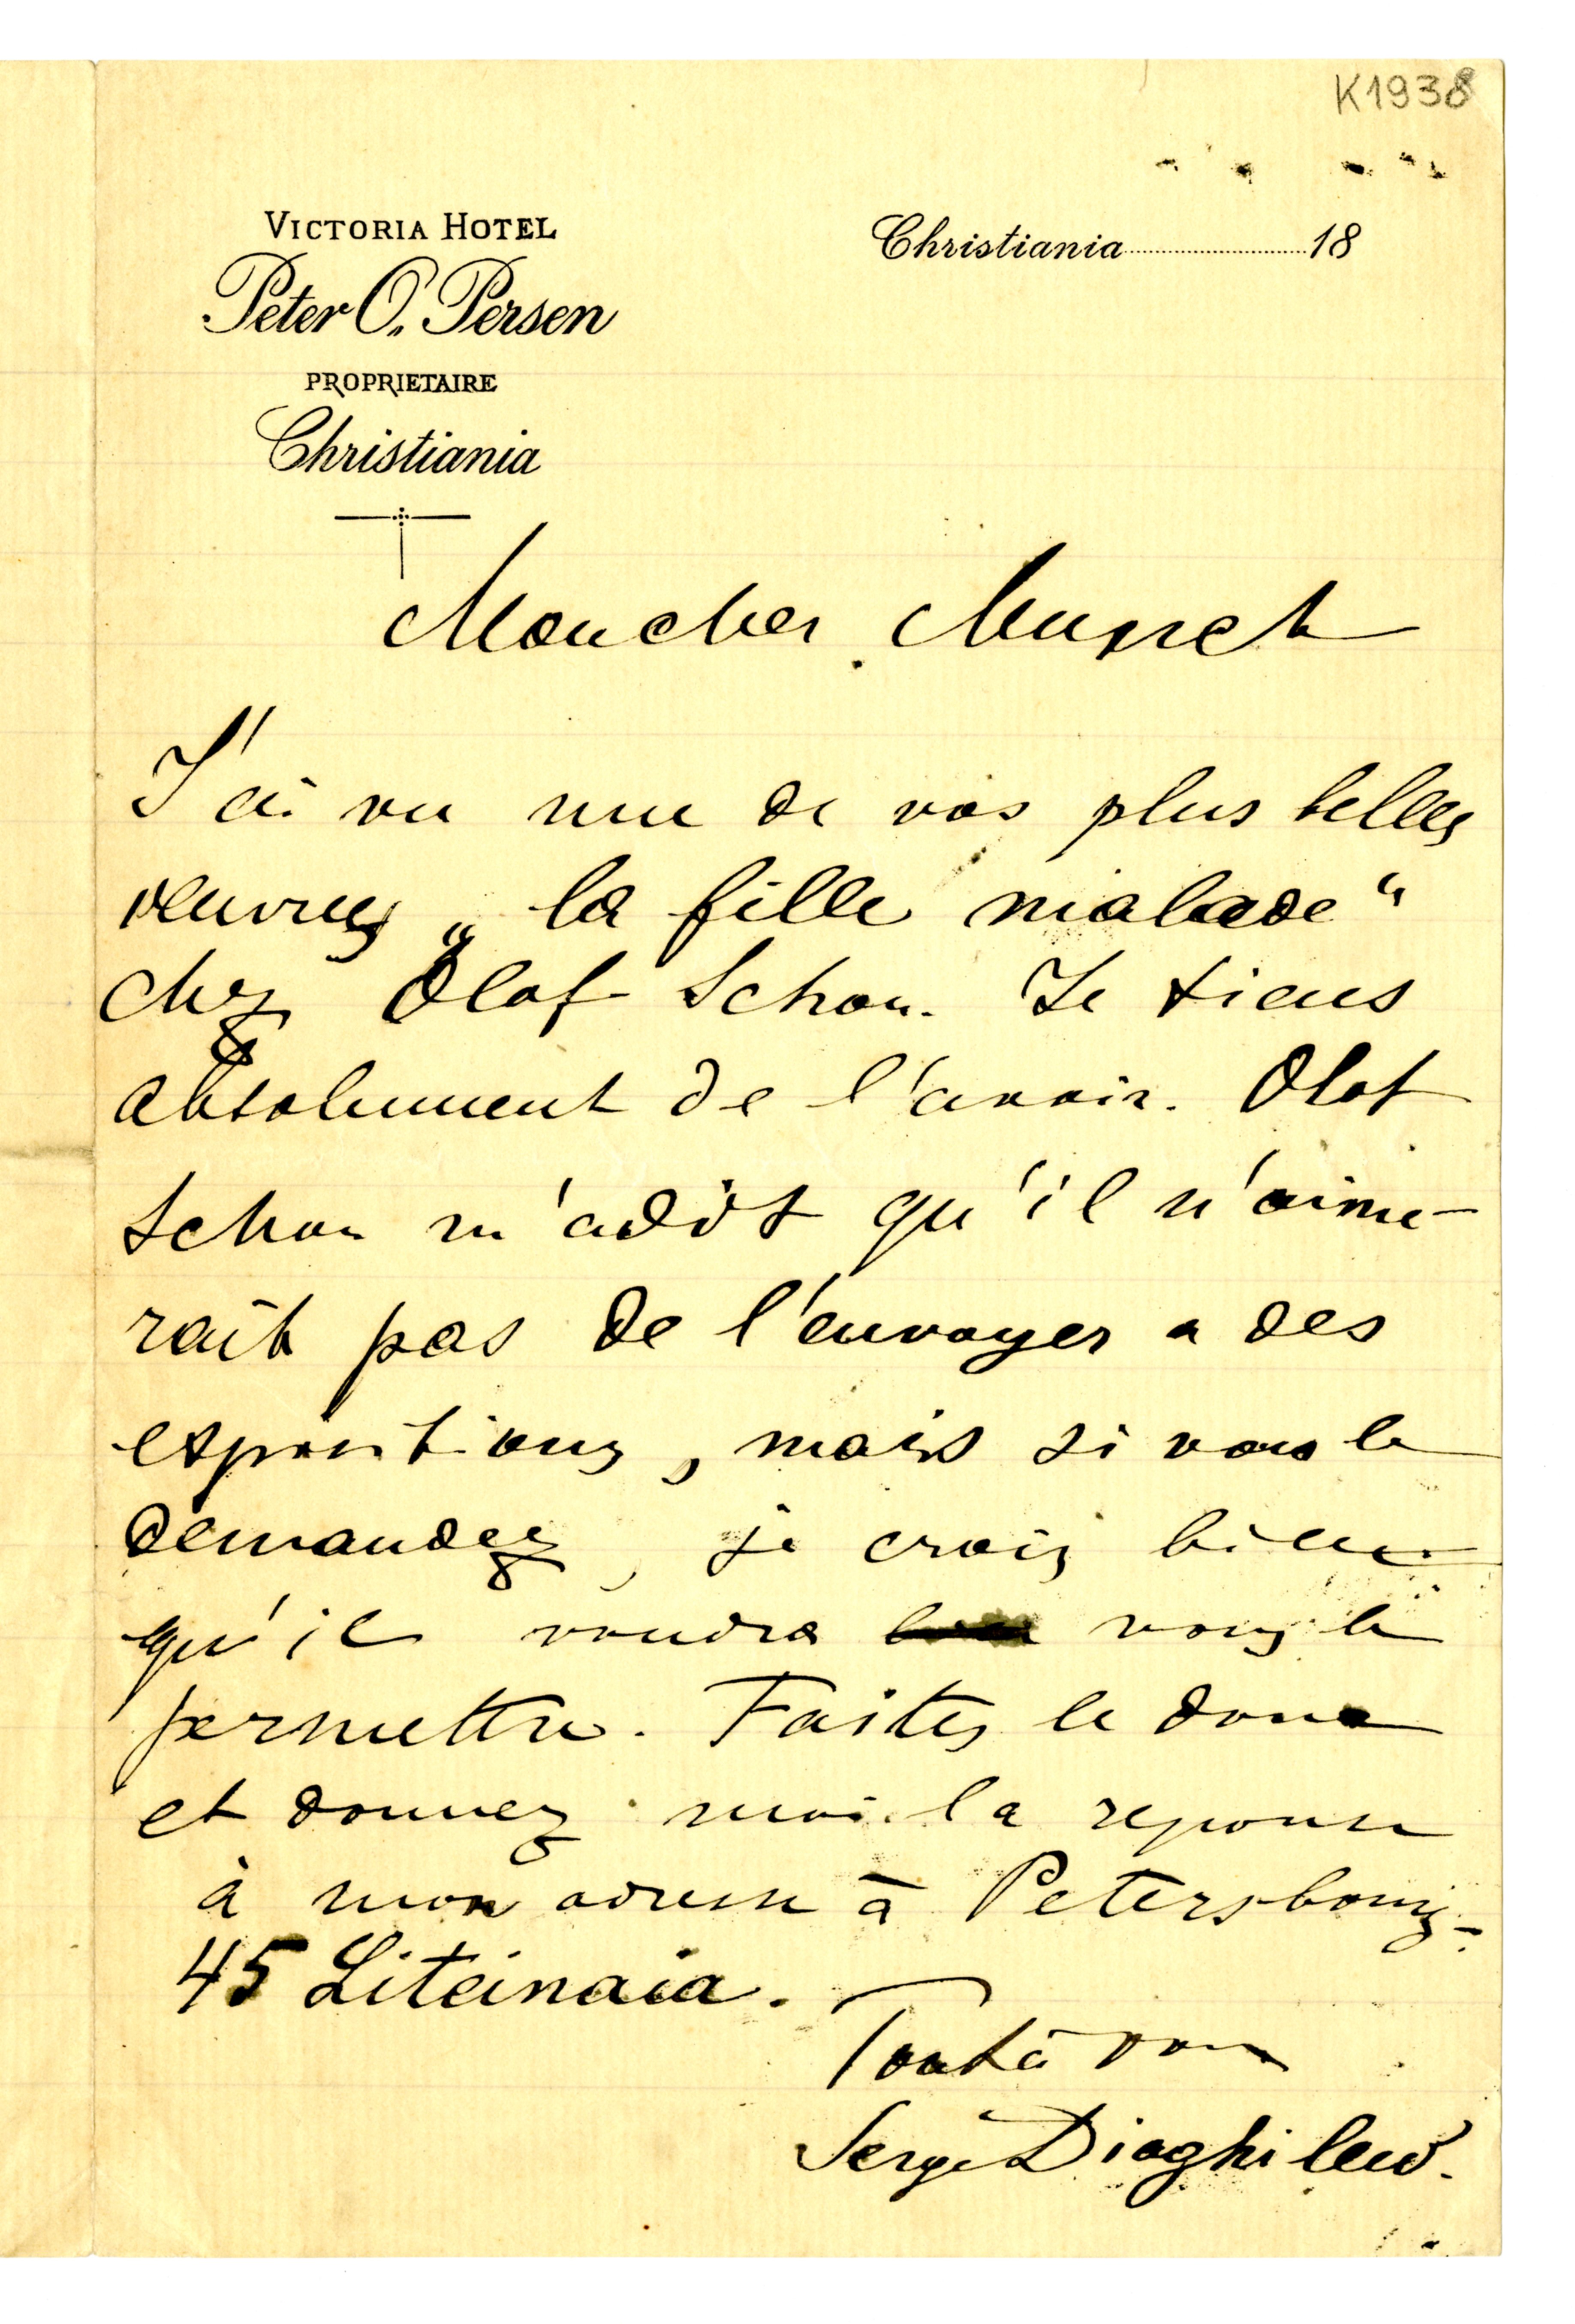 K1938
VICTORIA HOTEL
Peter O. Persen
PROPRIETAIRE
Christiania
Christiania 18
Mon cher Munch
J'ai vu une de vos plus belles
oeuvres „la fille malade“
chez Olaf Schou. Je tiens
absolument de l'avoir. Olaf
Schou m'a dit qu'il n'aime-
rait pas de l'envoyer a des
expositions, mais si vous le
demandez, je crois bien
qu'il voudra vous le
permettre. Faites le donc
et donnez moi la reponse
à mon adresse à Petersbourg-
45 Liteinaia.
Tout à vous
Serge Diaghilew.